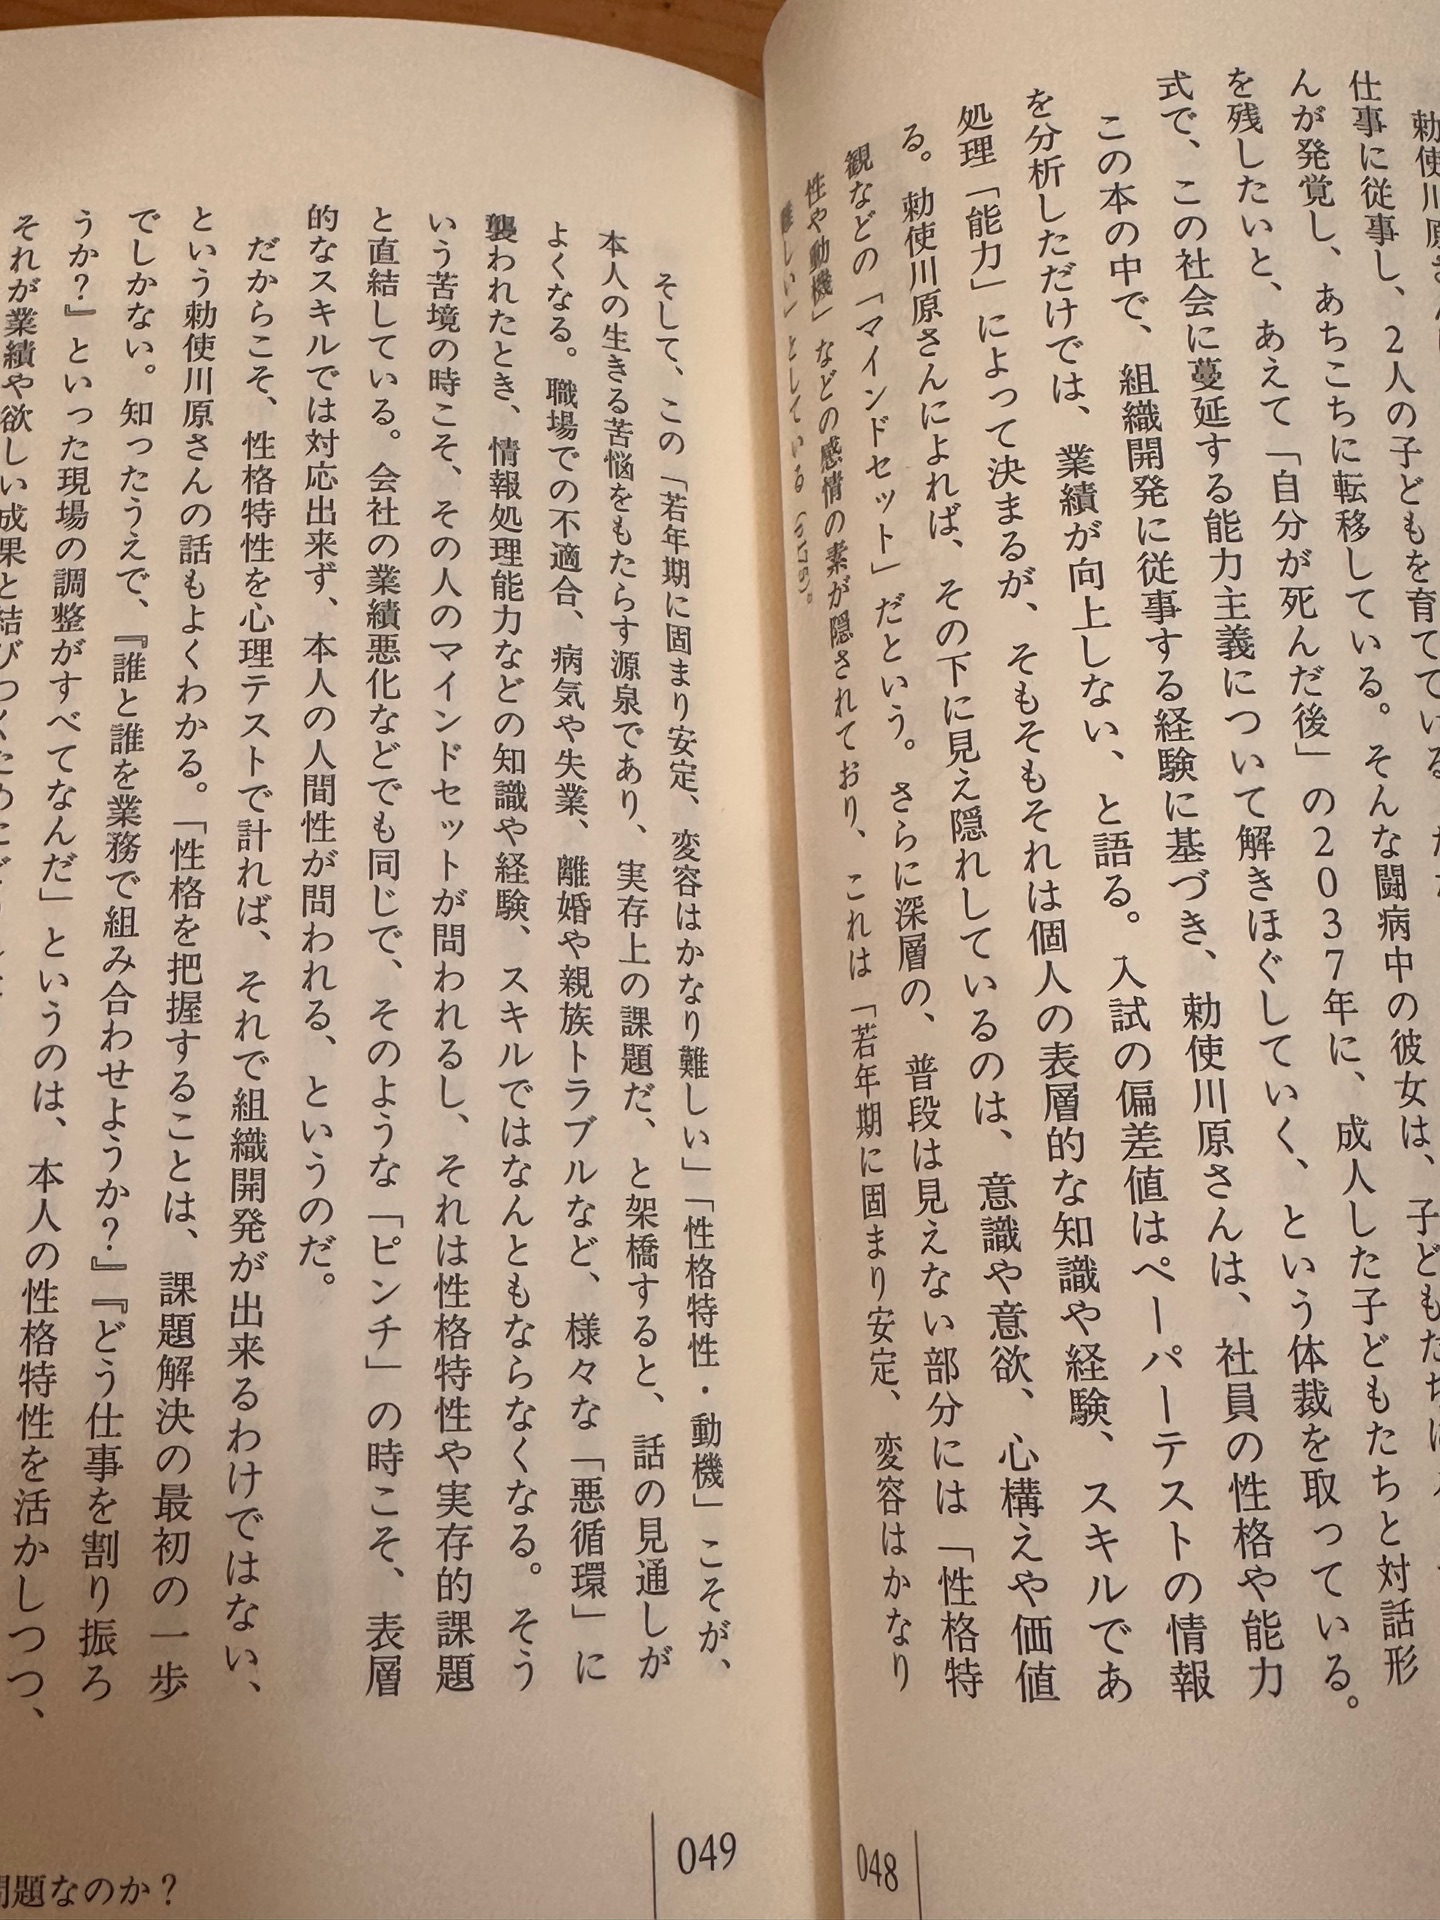 勅使川原さんは
仕事に従事し、2人の子どもを育てている
んが発覚し、あちこちに転移している。そんな闘病中の彼女は、子どもたち
を残したいと、あえて「自分が死んだ後」の2037年に、成人した子どもたちと対話形
式で、この社会に蔓延する能力主義について解きほぐしていく、という体裁を取っている。
この本の中で、組織開発に従事する経験に基づき、勅使川原さんは、社員の性格や能力
を分析しただけでは、業績が向上しない、と語る。入試の偏差値はペーパーテストの情報
処理「能力」によって決まるが、そもそもそれは個人の表層的な知識や経験、スキルであ
る。勅使川原さんによれば、その下に見え隠れしているのは、意識や意欲、心構えや価値
観などの「マインドセット」だという。さらに深層の、普段は見えない部分には「性格特
性や動機」などの感情の素が隠されており、これは「若年期に固まり安定、変容はかなり
難しい」としている
048
そして、この「若年期に固まり安定、変容はかなり難しい」「性格特性・動機」こそが、
本人の生きる苦悩をもたらす源泉であり、実存上の課題だ、と架橋すると、話の見通しが
よくなる。職場での不適合、病気や失業、離婚や親族トラブルなど、様々な「悪循環」に
襲われたとき、情報処理能力などの知識や経験、スキルではなんともならなくなる。そう
いう苦境の時こそ、その人のマインドセットが問われるし、それは性格特性や実存的課題
と直結している。会社の業績悪化などでも同じで、そのような「ピンチ」の時こそ、表層
的なスキルでは対応出来ず、本人の人間性が問われる、というのだ。
だからこそ、性格特性を心理テストで計れば、それで組織開発が出来るわけではない、
という勅使川原さんの話もよくわかる。「性格を把握することは、課題解決の最初の一歩
でしかない。知ったうえで、『誰と誰を業務で組み合わせようか？』『どう仕事を割り振ろ
うか？』といった現場の調整がすべてなんだ」というのは、本人の性格特性を活かしつつ、
それが業績や欲しい成果と結びつくために
049
問題なのか？